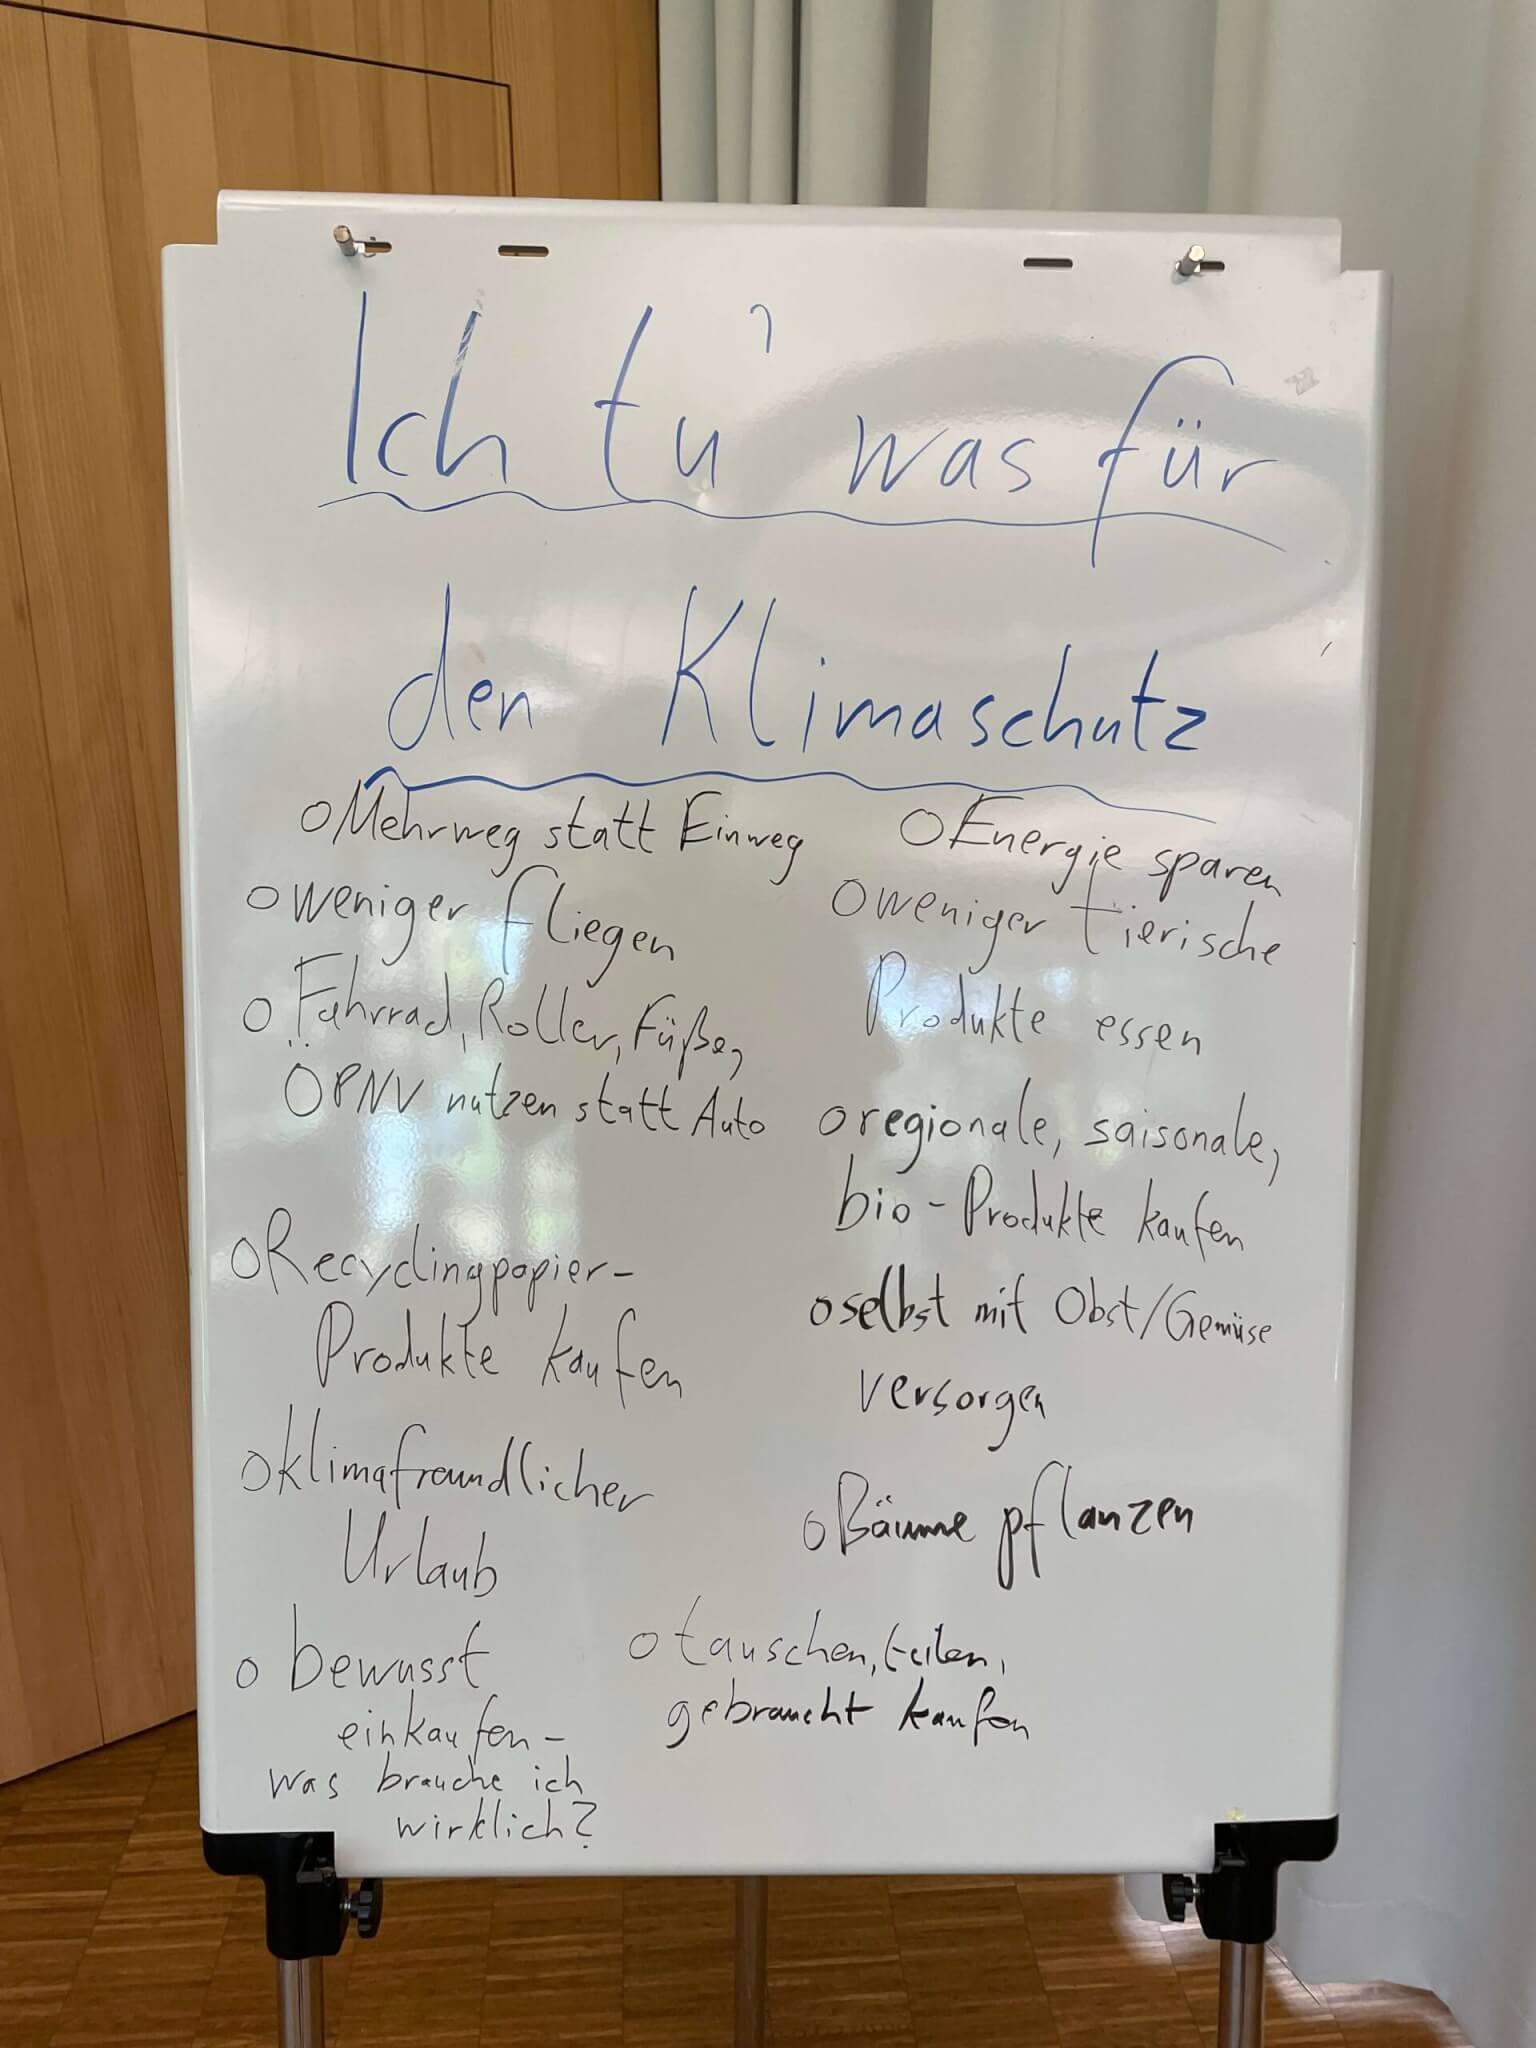 Ich tu' was für
den Klimaschutz
O Mehrweg statt Einweg
O weniger fliegen
O Fahrrad, Roller, Füße,
ÖPNV nutzen statt Auto
O Recyclingpapier-
Produkte kaufen
O klimafreundlicher
Urlaub
O bewusst
einkaufen -
was brauche ich
wirklich?
O Energie sparen
O weniger tierische
Produkte essen
O regionale, saisonale,
bio-Produkte kaufen
O selbst mit Obst/Gemüse
versorgen
O Bäume pflanzen
O tauschen, teilen,
gebraucht kaufen